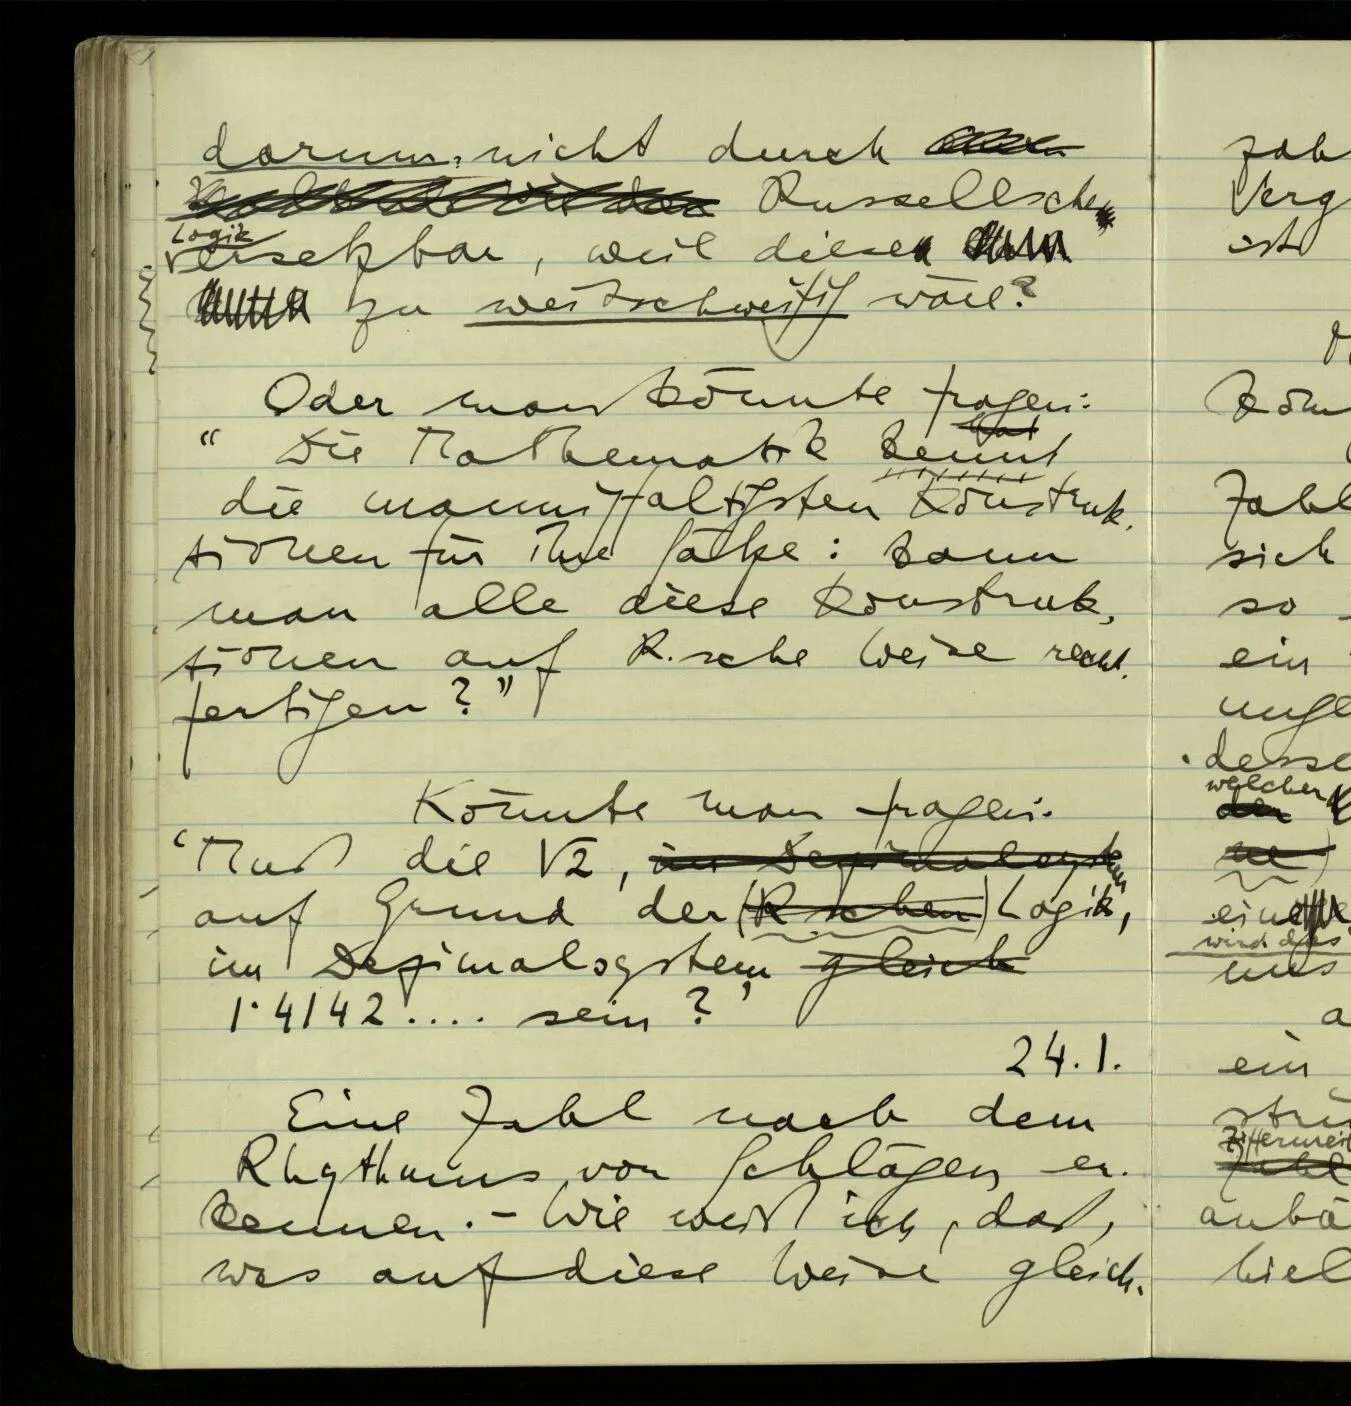 darum nicht durch
Russellsche
Logik
ersetzbar, weil diese
zu weitschweifig wäre?
Oder man könnte fragen:
hat
"Die Mathematik kennt
die mannigfaltigsten Konstruk-
tionen für ihre Sätze: kann
man alle diese Konstruk-
tionen auf R.sche Weise recht-
fertigen?"
Könnte man fragen:
'Muß die √2, im Dezimalsystem
auf Grund der (R.schen) Logik,
im Dezimalsystem gleich
1·4142.... sein?'
24.1.
Eine Zahl nach dem
Rhythmus von Schlägen er-
kennen. – Wie weiß ich, daß,
was auf diese Weise gleich-
zah
Verg
ist
Kön
Zahl
sich
so
ein
ungl
desse
welcher
der
ne
eine
wird das
uns
a
ein
stri
Ziffernwei
Zahl
anbä
hiel